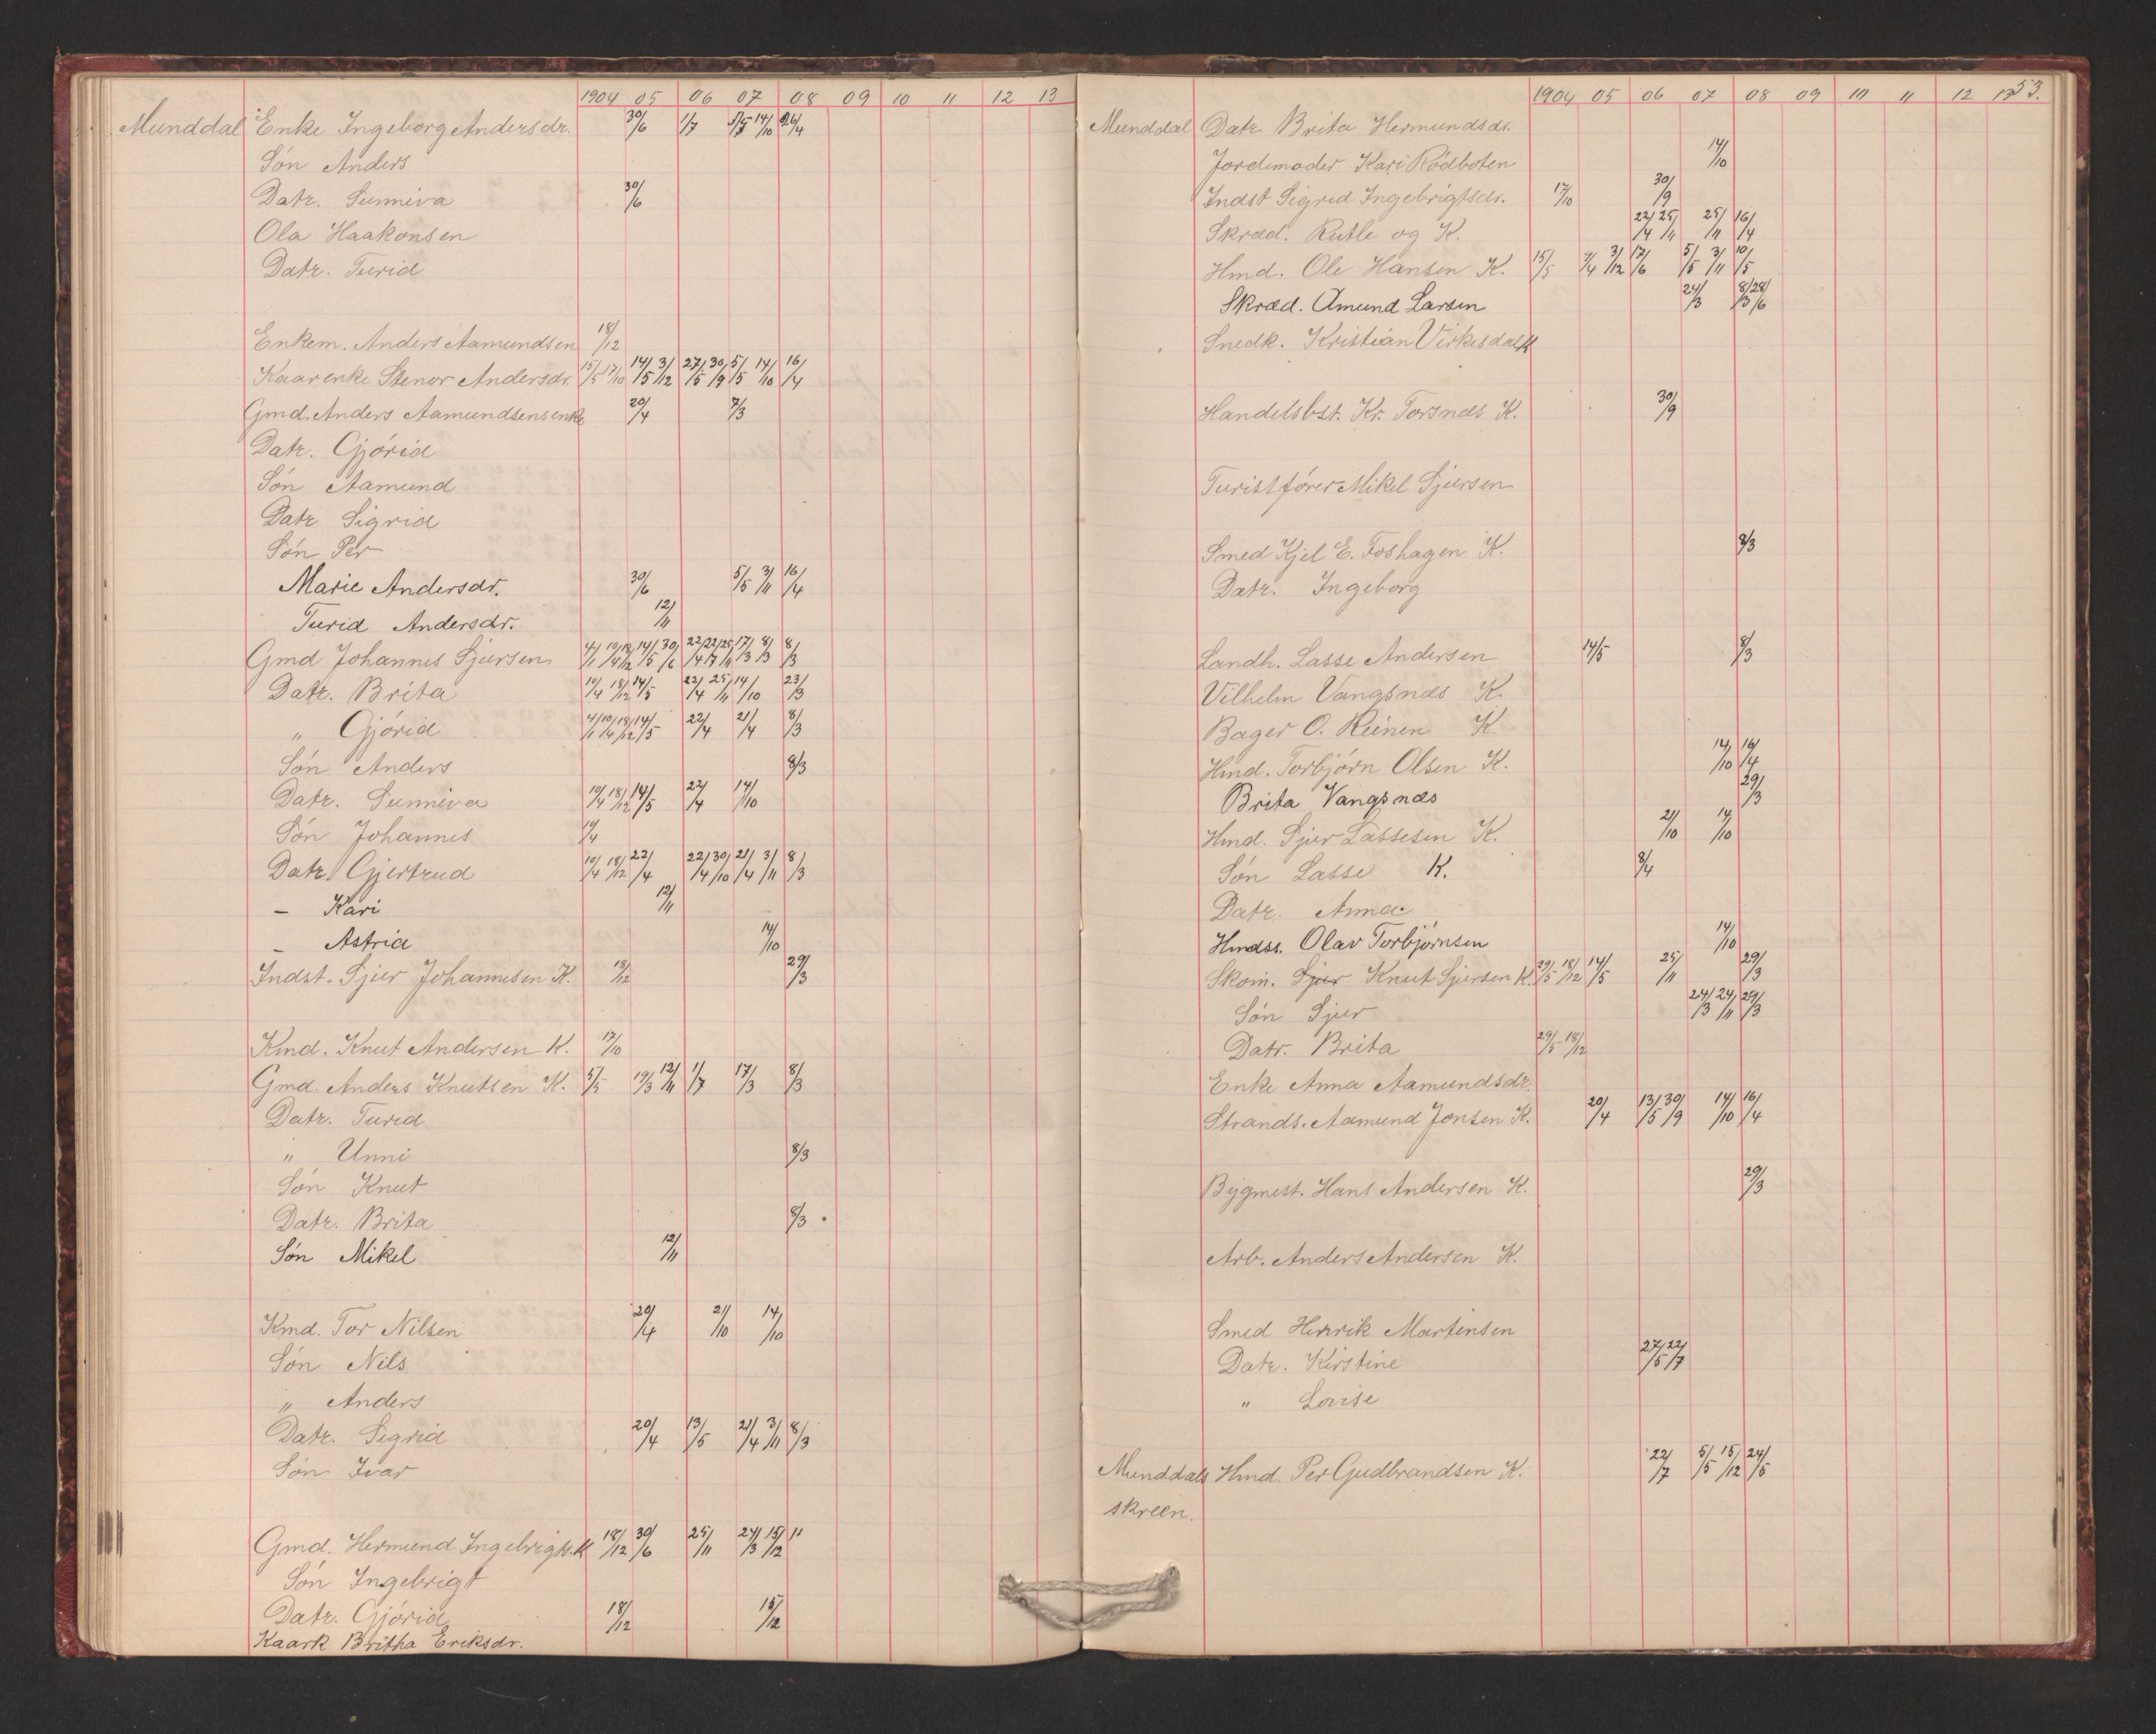 1904 05 06 07 08 09 10 11 12 13
Munddal Enke Ingeborg Andersdr. 30/6 1/7 14/10 26/4
Søn Anders
Datr. Sunniva 30/6
Ola Haakonsen
Datr. Turid
Enkem. Anders Aamundsen 18/12
Kaarenke Stenor Andersdr. 15/5 17/10 14/5 3/12 27/5 30/9 5/5 14/10 16/4
Gmd. Anders Aamundsens enke 20/4 7/3
Datr. Gjørid
Søn Aamund
Datr Sigrid
Søn Per
Marie Andersdr. 30/6 5/5 3/11 16/4
Turid Andersdr. 12/11
Gmd Johannes Sjursen 4/1 10/4 18/12 14/5 30/6 22/4 22/7 25/11 17/3 8/3 8/3
Datr. Brita 10/4 18/12 14/5 22/4 25/11 14/10 23/3
" Gjørid 4/1 10/4 18/12 14/5 22/4 21/4 8/3
Søn Anders 8/3
Datr. Sunniva 10/4 18/12 14/5 22/4 14/10
Søn Johannes 10/4
Datr. Gjertrud 10/4 18/12 22/4 22/4 30/10 21/4 3/11 8/3
- Kari 12/11
- Astrid 14/10
Indst. Sjur Johannesen K. 18/12 29/3
Kmd. Knut Andersen K. 17/10
Gmd. Anders Knutsen K. 5/5 19/3 12/11 1/7 17/3 8/3
Datr. Turid
" Unni 8/3
Søn Knut
Datr. Brita 8/3
Søn Mikel 12/11
Kmd. Tor Nilsen 20/4 21/10 14/10
Søn Nils
" Anders
Datr. Sigrid 20/4 13/5 21/4 3/11 8/3
Søn Ivar
Gmd. Hermund Ingebrigts. K 18/12 30/6 25/11 24/3 15/12 "
Søn Ingebrigt
Datr. Gjørid 18/12 15/12
Kaark Britha Eriksdr.
53.
1904 05 06 07 08 09 10 11 12 13
Munddal Datr. Brita Hermundsdr.
Jordemoder Kari Rødboten 14/10
Indst Sigrid Ingebrigtsdr. 17/10 30/9
Skræd. Rutle og K. 22/4 25/11 25/11 16/4
Hmd. Ole Hansen K. 15/5 9/4 3/12 17/6 5/5 3/11 10/5
Skræd. Amund Larsen 24/3 8/3 28/6
Snedk. Kristian Virkesdal K
Handelsbst. Kr. Torsnæs K. 30/9
Turistfører Mikel Sjursen
Smed Kjel E. Foshagen K. 8/3
Datr. Ingeborg
Landh. Lasse Andersen 14/5 8/3
Vilhelm Vangsnæs K.
Bager O. Reinen K.
Hmd. Torbjørn Olsen K. 14/10 16/4
Brita Vangsnæs 29/3
Hmd. Sjur Lassesen K. 21/10 14/10
Søn Lasse K. 8/4
Datr. Anna
Hmdss. Olav Torbjørnsen 14/10
Skom. Sjur Knut Sjursen K. 29/5 18/12 14/5 25/11 29/3
Søn Sjur 24/3 24/11 29/3
Datr. Brita 29/5 18/12
Enke Anna Aamundsdr.
Strands. Aamund Jonsen K. 20/4 13/5 30/9 14/10 16/4
Bygmest. Hans Andersen K. 29/3
Arb. Anders Andersen K.
Smed Henrik Martinsen
Datr. Kirstine 27/5 22/7
" Lovise
Munddals Hmd. Per Gudbrandsen K. 22/7 5/5 15/12 24/5
skreen.